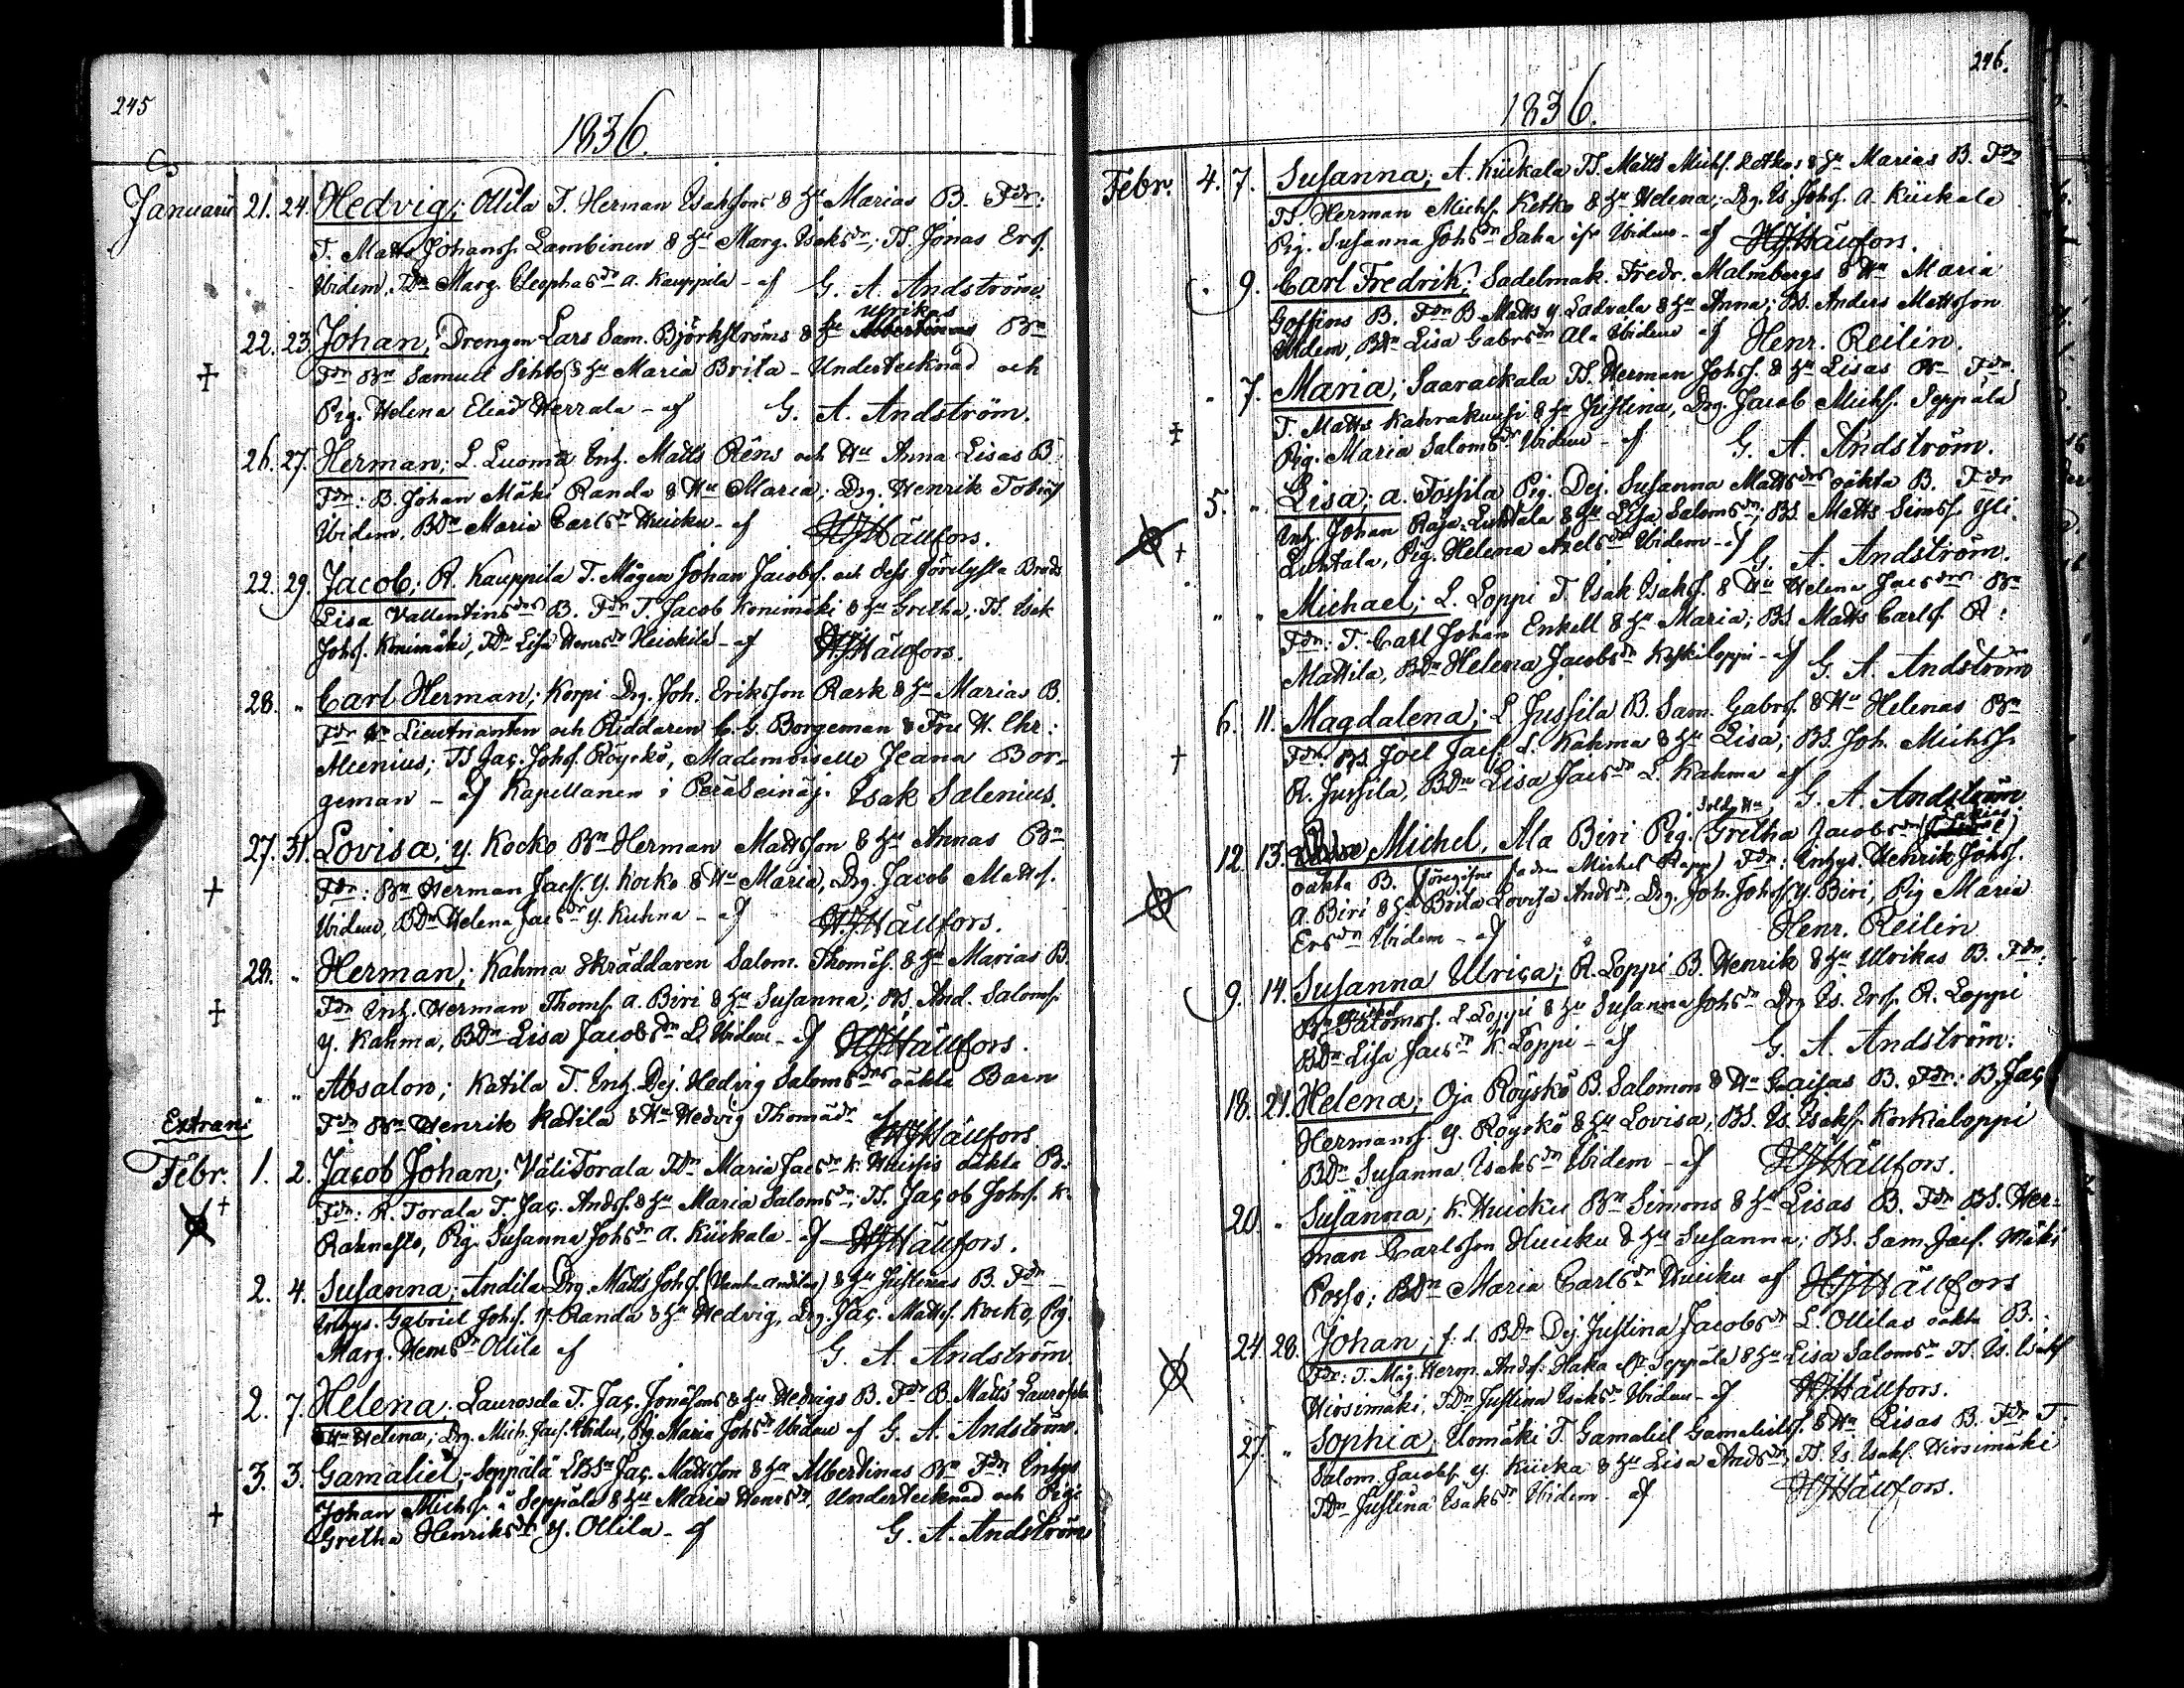 245
1836.
Januarii 21. 24. Hedvig; Ollila T. Herman Isakssons & Hu Marias B. Fdr:
T. Matts Johanss. Lambinen & Hu Marg. Isaksdr; TS. Jonas Ersf.
Ibidem, TDr Marg. Cleophasdr a. Kauppila - af G. A. Andström.
Ulrikas
22. 23. Johan; Drengen Lars Sam. Björkströms & Hu Albertinas Bn
Fdr Bn Samuel & Hu Maria Brita - Undertecknad och
Pig. Helena Eliædr Herrala - af G. A. Andström.
26. 27. Herman; L. Luoma Inh. Matts Réns och Hu Anna Lisas B.
Fdr: B. Johan Mäki Randa & Hu Maria; Drg. Henrik Tobiæs
Ibidem, BDr Maria Carlsdr Huicku - af HJHällfors.
22. 29. Jacob; R. Kauppila T. Mågen Johan Jacobss. och dess Brud
Lisa Vallentinsdrs B. Fdr T. Jacob Konimäki & Hu Gretha; TS. Isak
Johss. Konimäki, TDr Lisa Henrsdr Heickilä - af HJHällfors.
28. " Carl Herman; Korpi Drg. Joh. Eriksson Rask & Hu Marias B.
Fdr Hr Lieutnanten och Riddaren C. G. Borgeman & Fru H. Chr:
Alcenius; TS Jac. Johss. Röyskö, Mademoiselle Jeana Bor-
geman - af Kapellanen i Peräseinäj. Isak Salenius.
27. 31. Lovisa; y. Kocko Bn Herman Mattsson & Hu Annas Bn
Fdr: Bn Herman Jacss. y. Kocko & Hu Maria, Drg. Jacob Mattss.
Ibidem, BDr Helena Jacsdr y. Kuhna - af HJHällfors.
28. " Herman; Kahma Skräddaren Salom. Thomæs. & Hu Marias B.
Fdr Inh. Herman Thomss. a. Biri & Hu Susanna; BS. And. Salomss.
y. Kahma, BDr Lisa Jacobsdr L. Ibidem - af HJHällfors.
" " Absalon; Katila T. Inh. Dej. Hedvig Salomsdrs oäkta Barn
Fdr Bn Henrik Katila & Hu Hedvig Thomædr af HJHällfors.
Extran:
Febr. 1. 2. Jacob Johan; Väli Torala TDr Maria Jacsdr K. oäkta B.
Fdr: R. Torala T. Jac. Andss. & Hu Maria Salomsdr; TS. Jacob Johss. K.
Rahnasto, Pig. Susanna Johsdr a. Kückala - af HJHällfors.
2. 4. Susanna; Andila Drg. Matts Johss. (Vanha andilas) & Hu Justinas B. Fdr
Inhys. Gabriel Johss. Randa & Hu Hedvig, Drg. Jac. Mattss. Kocko, Pig.
Marg. Hermsdr Ollila af G. A. Andström.
2. 7. Helena; Laurosela T. Jac. Jonæsons & Hu Hedvigs B. Fdr B. Matts Laurosela
& Hu Helena; Drg. Mich. Jacss. Ibidem, Pig. Maria Johsdr Ibidem af G. A. Andström.
3. 3. Gamaliel; Seppälä BSn Jac. Mattsson & Hu Albertinas Bn Fdr Inhys
Johan Michss. à Seppälä & Hu Maria Henrsdr, Undertecknad och Pig.
Gretha Henriksdr y. Ollila - af G. A. Andström
246.
1836.
Febr. 4. 7. Susanna; A. Kückala TS. Matts Michss. Ketkos & Hu Marias B. Fdr
TS. Herman Michss. Ketko & Hu Helena; Drg. Is. Johss. a. Kückala
Pig. Susanna Johsdr Saha Ibidem - af HJHällfors.
" 9. Carl Fredrik; Sadelmak. Fredr. Malmbergs & Hu Maria
Goffins B. Fdr B. Matts y. Ladvala & Hu Anna; BS. Anders Mattsson
Ibidem, BDr Lisa Gabrsdr Ala Ibidem af Henr. Reilin.
" 7. Maria; Saarackala TS. Herman Johss. & Hu Lisas Bn Fdr
T. Matts Kahrakuusi & Hu Justina, Drg. Jacob Michss. Seppälä
Pig. Maria Salomsdr Ibidem - af G. A. Andström.
5. " Lisa; a. Fossila Pig. Dej. Susanna Mattsdrs oäkta B. Fdr
Inh. Johan Raja-Luhtala & Hu Lisa Salomsdr; BS. Matts Simss. Yli
Luhtala, Pig. Helena Axelsdr Ibidem - af G. A. Andström.
" " Michael; L. Loppi T. Isak Isakss. & Hu Helena Jacsdrs Bn
Fdr: T. Carl Johan Enkell & Hu Maria; BS Matts Carlss. R:
Mattila, BDr Helena Jacobsdr Keskiloppi - af G. A. Andström
6. 11. Magdalena; L. Jussila B. Sam. Gabrss. & Hu Helenas Bn
Fdr: BS. Joel Jacss. L. Kahma & Hu Lisa; BS. Joh. Michss.
R. Jussila, BDr Lisa Jacsdr L. Kahma af G. A. Andström.
Sold. Hu
12. 13. Michel, Ala Biri Pig. Gretha Jacobsdr
oäkta B. (föregifne fadren Michel Rapp) Fdr: Inhys. Henrik Johss.
a. Biri & Hu Brita Lovisa Andsdr, Drg. Joh. Johss. y. Biri, Pig Maria
Ersdr Ibidem - af Henr. Reilin
9. 14. Susanna Ulrica; R. Loppi B. Henrik & Hu Ulrikas B. Fdr:
Michel
Bn Salomss. L. Loppi & Hu Susanna Johsdr Drg Is. Ersf. R. Loppi
BDr Lisa Jacsdr K. Loppi - af G. A. Andström.
18. 21. Helena; Oja Röyskö B. Salomon & Hu Caisas B. Fdr: B. Jac
Hermanss. y. Röyskö & Hu Lovisa; BS. Is. Isakss. Korkialoppi
BDr Susanna Isaksdr Ibidem - af HJHällfors.
20. " Susanna; K. Huicku Bn Simons & Hu Lisas B. Fdr BS. Her-
man Carlsson Huicku & Hu Susanna; BS. Sam. Jacss. Mäki
Posso; BDr Maria Carlsdr Huicku af HJHällfors
24. 28. Johan; f. d. BDr Dej. Justina Jacobsdr L. Ollilas oäkta B.:
Fdr: T. Måg. Herm. Andss. Haka Seppälä & Hu Lisa Salomsdr TS. Is. Isakss
Hirsimäki, TDr Justina Isaksdr Ibidem - af HJHällfors.
27. " Sophia; Uomäki T. Gamaliel Gamalielss. & Hu Lisas B. Fdr T.
Salom. Jacobss. y. Kücka & Hu Lisa Andsdr, TS. Is. Isakss. Hirsimäki
TDr Justina Isaksdr Ibidem - af HJHällfors.